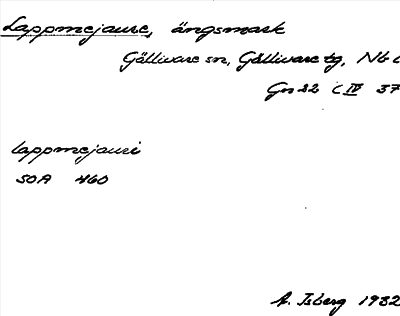 Lappmejaure, ängsmark
Gällivare sn, Gällivare tg, Nb l
Gn 22 c IV 37
lappmejauri
SOA 460
A. Isberg 1932